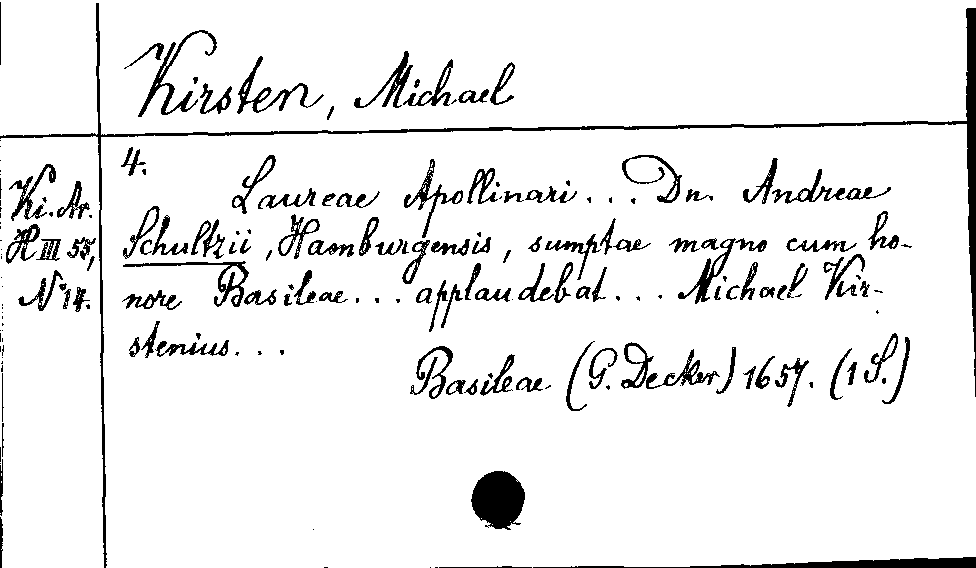 Kirsten, Michael
Ki. Ar.
H III 55,
N° 14.
4.
Laureae Apollinari... Dn. Andreae
Schultzii, Hamburgensis, sumptae magno cum ho-
nore Basileae... applaudebat... Michael Kir-
stenius...
Basileae (G. Decker) 1657. (1 S.)